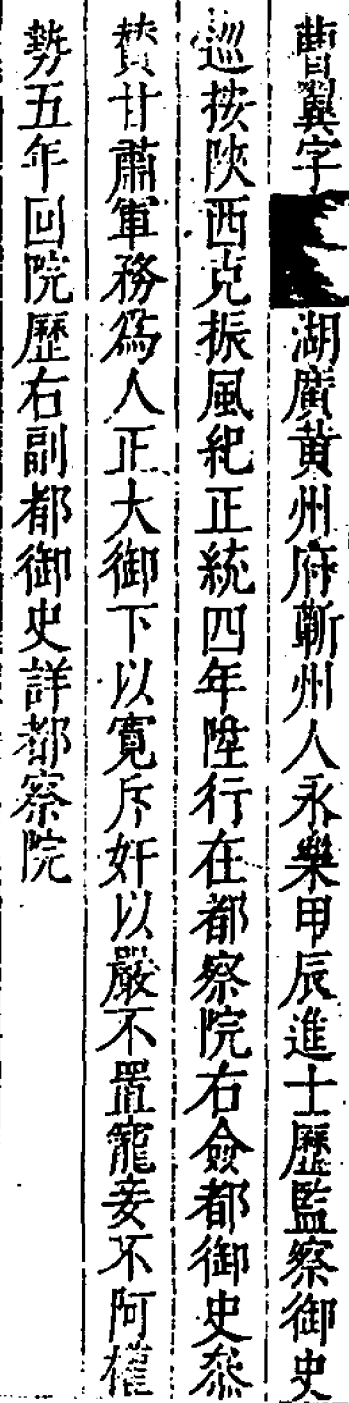 曹翼字湖廣黃州府蘄州人永樂甲辰進士歷監察御史
巡按陝西克振風紀正統四年陞行在都察院右僉都御史叅
贊甘肅軍務爲人正大御下以寬斥奸以嚴不置寵妾不阿權
勢五年回院歷右副都御史詳都察院